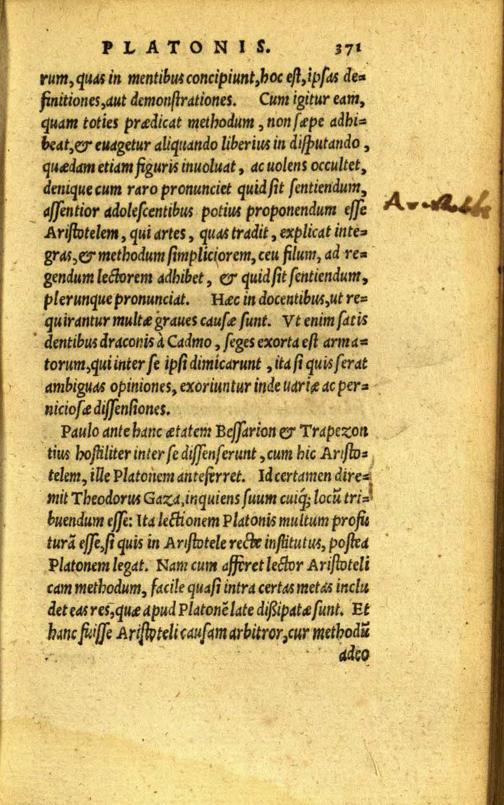 PLATONIS. 371
rum, quas in mentibus concipiunt, hoc est, ipsas de=
finitiones, aut demonstrationes. Cum igitur eam,
quam toties prædicat methodum, non sæpe adhi=
beat, & euagetur aliquando liberius in disputando,
quædam etiam figuris inuoluat, ac uolens occultet,
denique cum raro pronunciet quid sit sentiendum,
assentior adolescentibus potius proponendum esse
Aristotelem, qui artes, quas tradit, explicat inte=
gras, & methodum simpliciorem, ceu filum, ad re=
gendum lectorem adhibet, & quid sit sentiendum,
plerunque pronunciat. Hæc in docentibus, ut re=
quirantur multæ graues causæ sunt. Vt enim satis
dentibus draconis à Cadmo, seges exorta est arma=
torum, qui inter se ipsi dimicarunt, ita si quis serat
ambiguas opiniones, exoriuntur inde uariæ ac per=
niciosæ dissensiones.
Paulo ante hanc ætatem Bessarion & Trapezon
tius hostiliter inter se dissenserunt, cum hic Aristo=
telem, ille Platonem anteferret. Id certamen dire=
mit Theodorus Gaza, inquiens suum cuiq; locũ tri=
buendum esse: Ita lectionem Platonis multum profu
turã esse, si quis in Aristotele recte institutus, postea
Platonem legat. Nam cum afferet lector Aristoteli
cam methodum, facile quasi intra certas metas inclu
det eas res, quæ apud Platonẽ late dißipatæ sunt. Et
hanc fuisse Aristoteli causam arbitror, cur methodũ
adeo